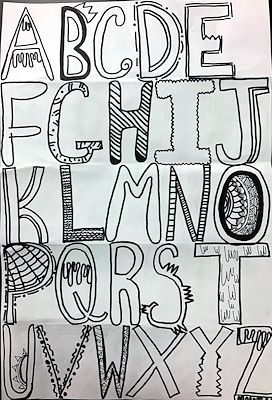 ABCDE
FGHIJ
KLMNO
PQRST
UVWXYZ